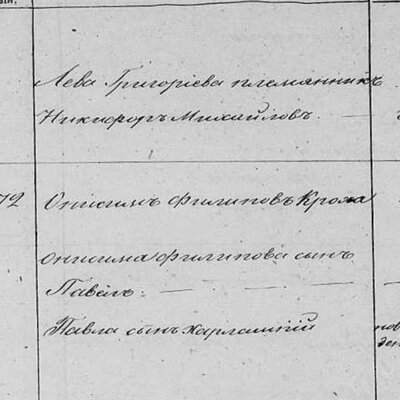 Лева Григоріева племянникъ
Никифоръ Михайловъ.
72 Онисимъ Филиповъ Крома
Онисима Филипова сынъ
Павелъ.
Павла сынъ Харлампій